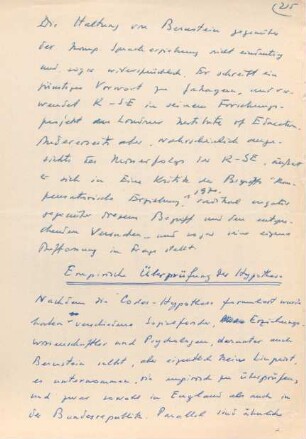 215
Die Haltung von Bernstein gegenüber
der Komp Spracherziehung nicht eindeutig
und sogar widersprüchlich. Er schreibt ein
günstiges Vorwort zu Gahagan, und ver-
wendet K-SE in seinem Forschungs-
projekt am Londoner Institute of Education
Andererseits aber, wahrscheinlich ange-
sichts des Misserfolgs der K-SE, äußert
er sich in Eine Kritik des Begriffs "Kom-
pensatorische Erziehung" 1970
gegenüber diesem Begriff und den entspre-
chenden Versuchen — und sogar seine eigene
Auffassung in Frage stellt.
Empirische Überprüfung der Hypothese
Nachdem die Codes-Hypothese formuliert wurde
haben verschiedene Sozialforscher, Erziehungs-
wissenschaftler und Psychologen, darunter auch
Bernstein selbst, aber eigentlich keine Linguisten
es unternommen, sie empirisch zu überprüfen,
und zwar sowohl in England als auch in
der Bundesrepublik. Parallel sind ähnliche